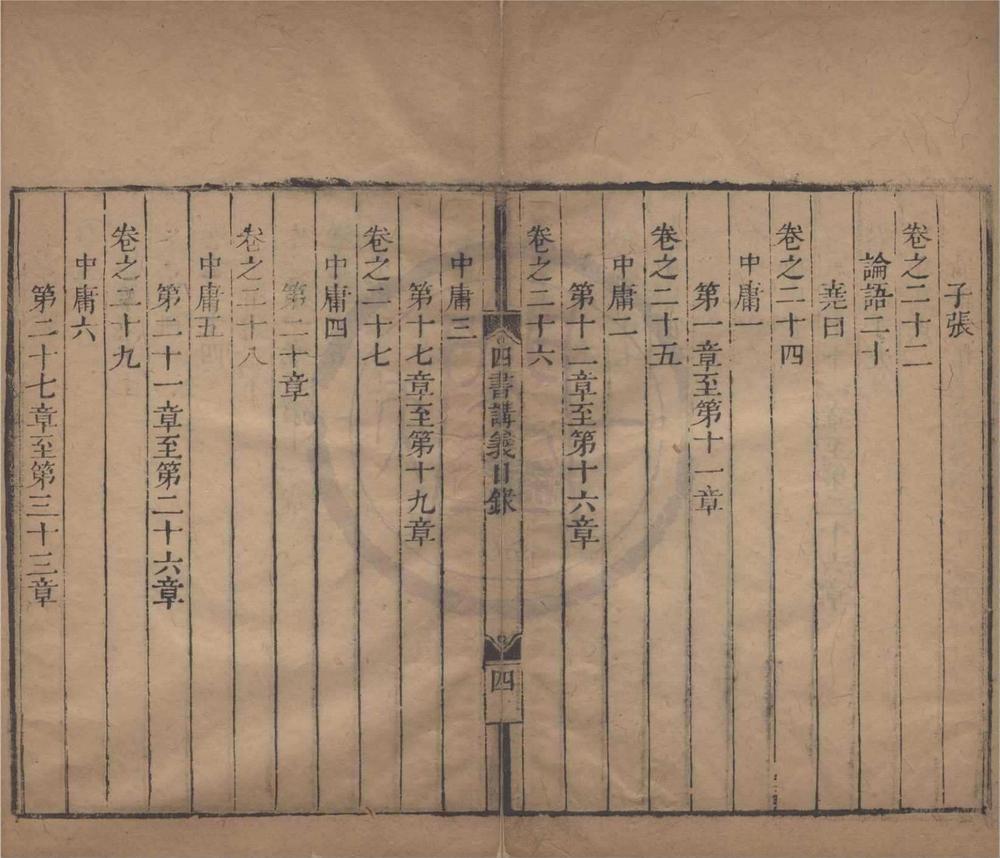 子張
卷之二十二
論語二十
堯曰
卷之二十四
中庸一
第一章至第十一章
卷之二十五
中庸二
第十二章至第十六章
卷之二十六
四書講義目錄
四
中庸三
第十七章至第十九章
卷之二十七
中庸四
第二十章
卷之二十八
中庸五
第二十一章至第二十六章
卷之二十九
中庸六
第二十七章至第三十三章